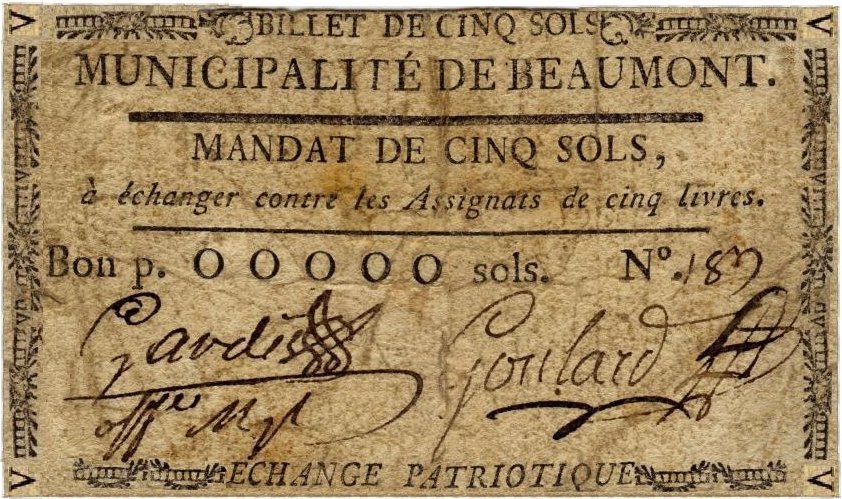 BILLET DE CINQ SOLS
MUNICIPALITÉ DE BEAUMONT.
MANDAT DE CINQ SOLS,
à échanger contre les Assignats de cinq livres.
Bon p. OOOOO sols. Nº. 183
Goulard
ECHANGE PATRIOTIQUE